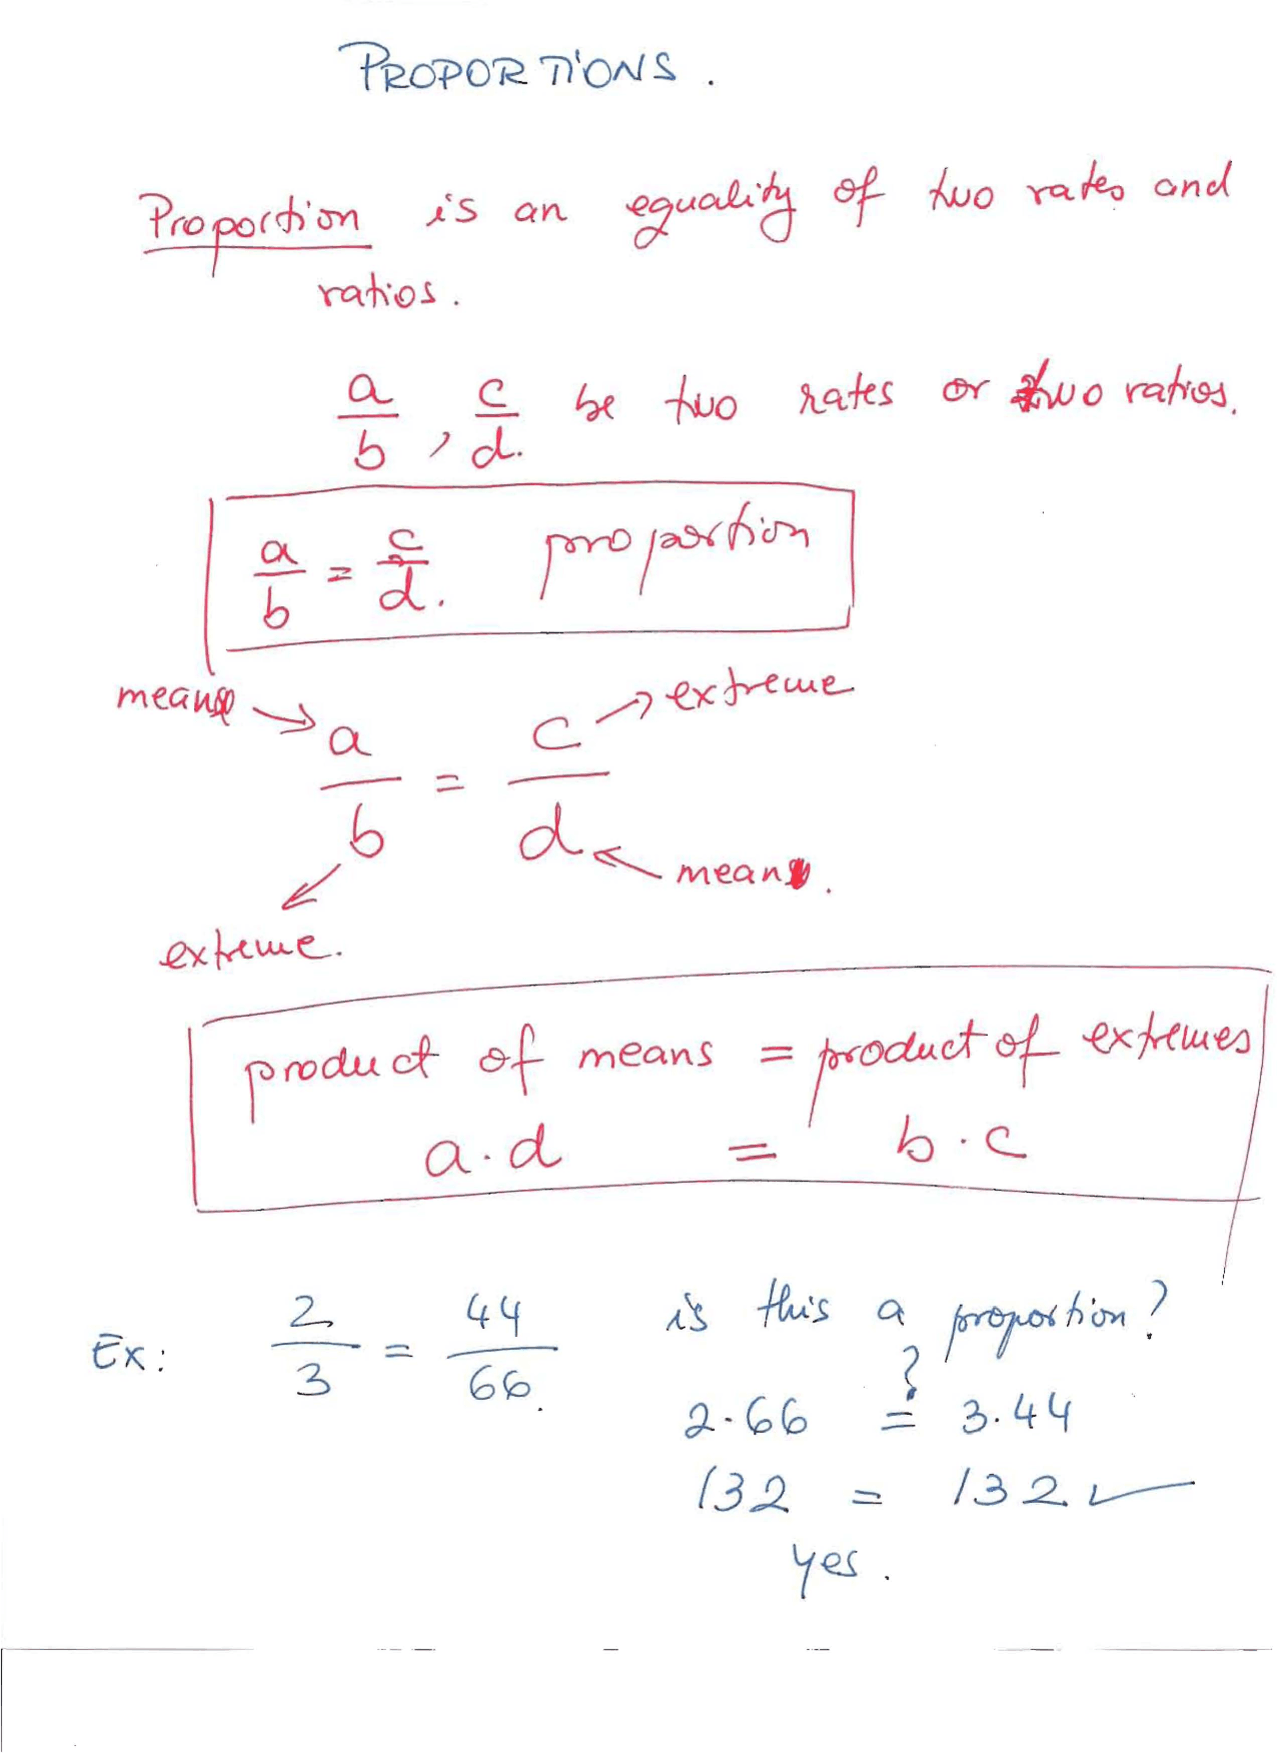 PROPORTIONS.
Proportion is an equality of two rates and
ratios.
a/b , c/d. be two rates or two ratios.
a/b = c/d. proportion
mean → a/b = c/d → extreme
extreme. ← b d ← mean.
product of means = product of extremes
a.d = b.c
Ex: 2/3 = 44/66. is this a proportion?
?
2.66 = 3.44
132 = 132 ✓
yes.